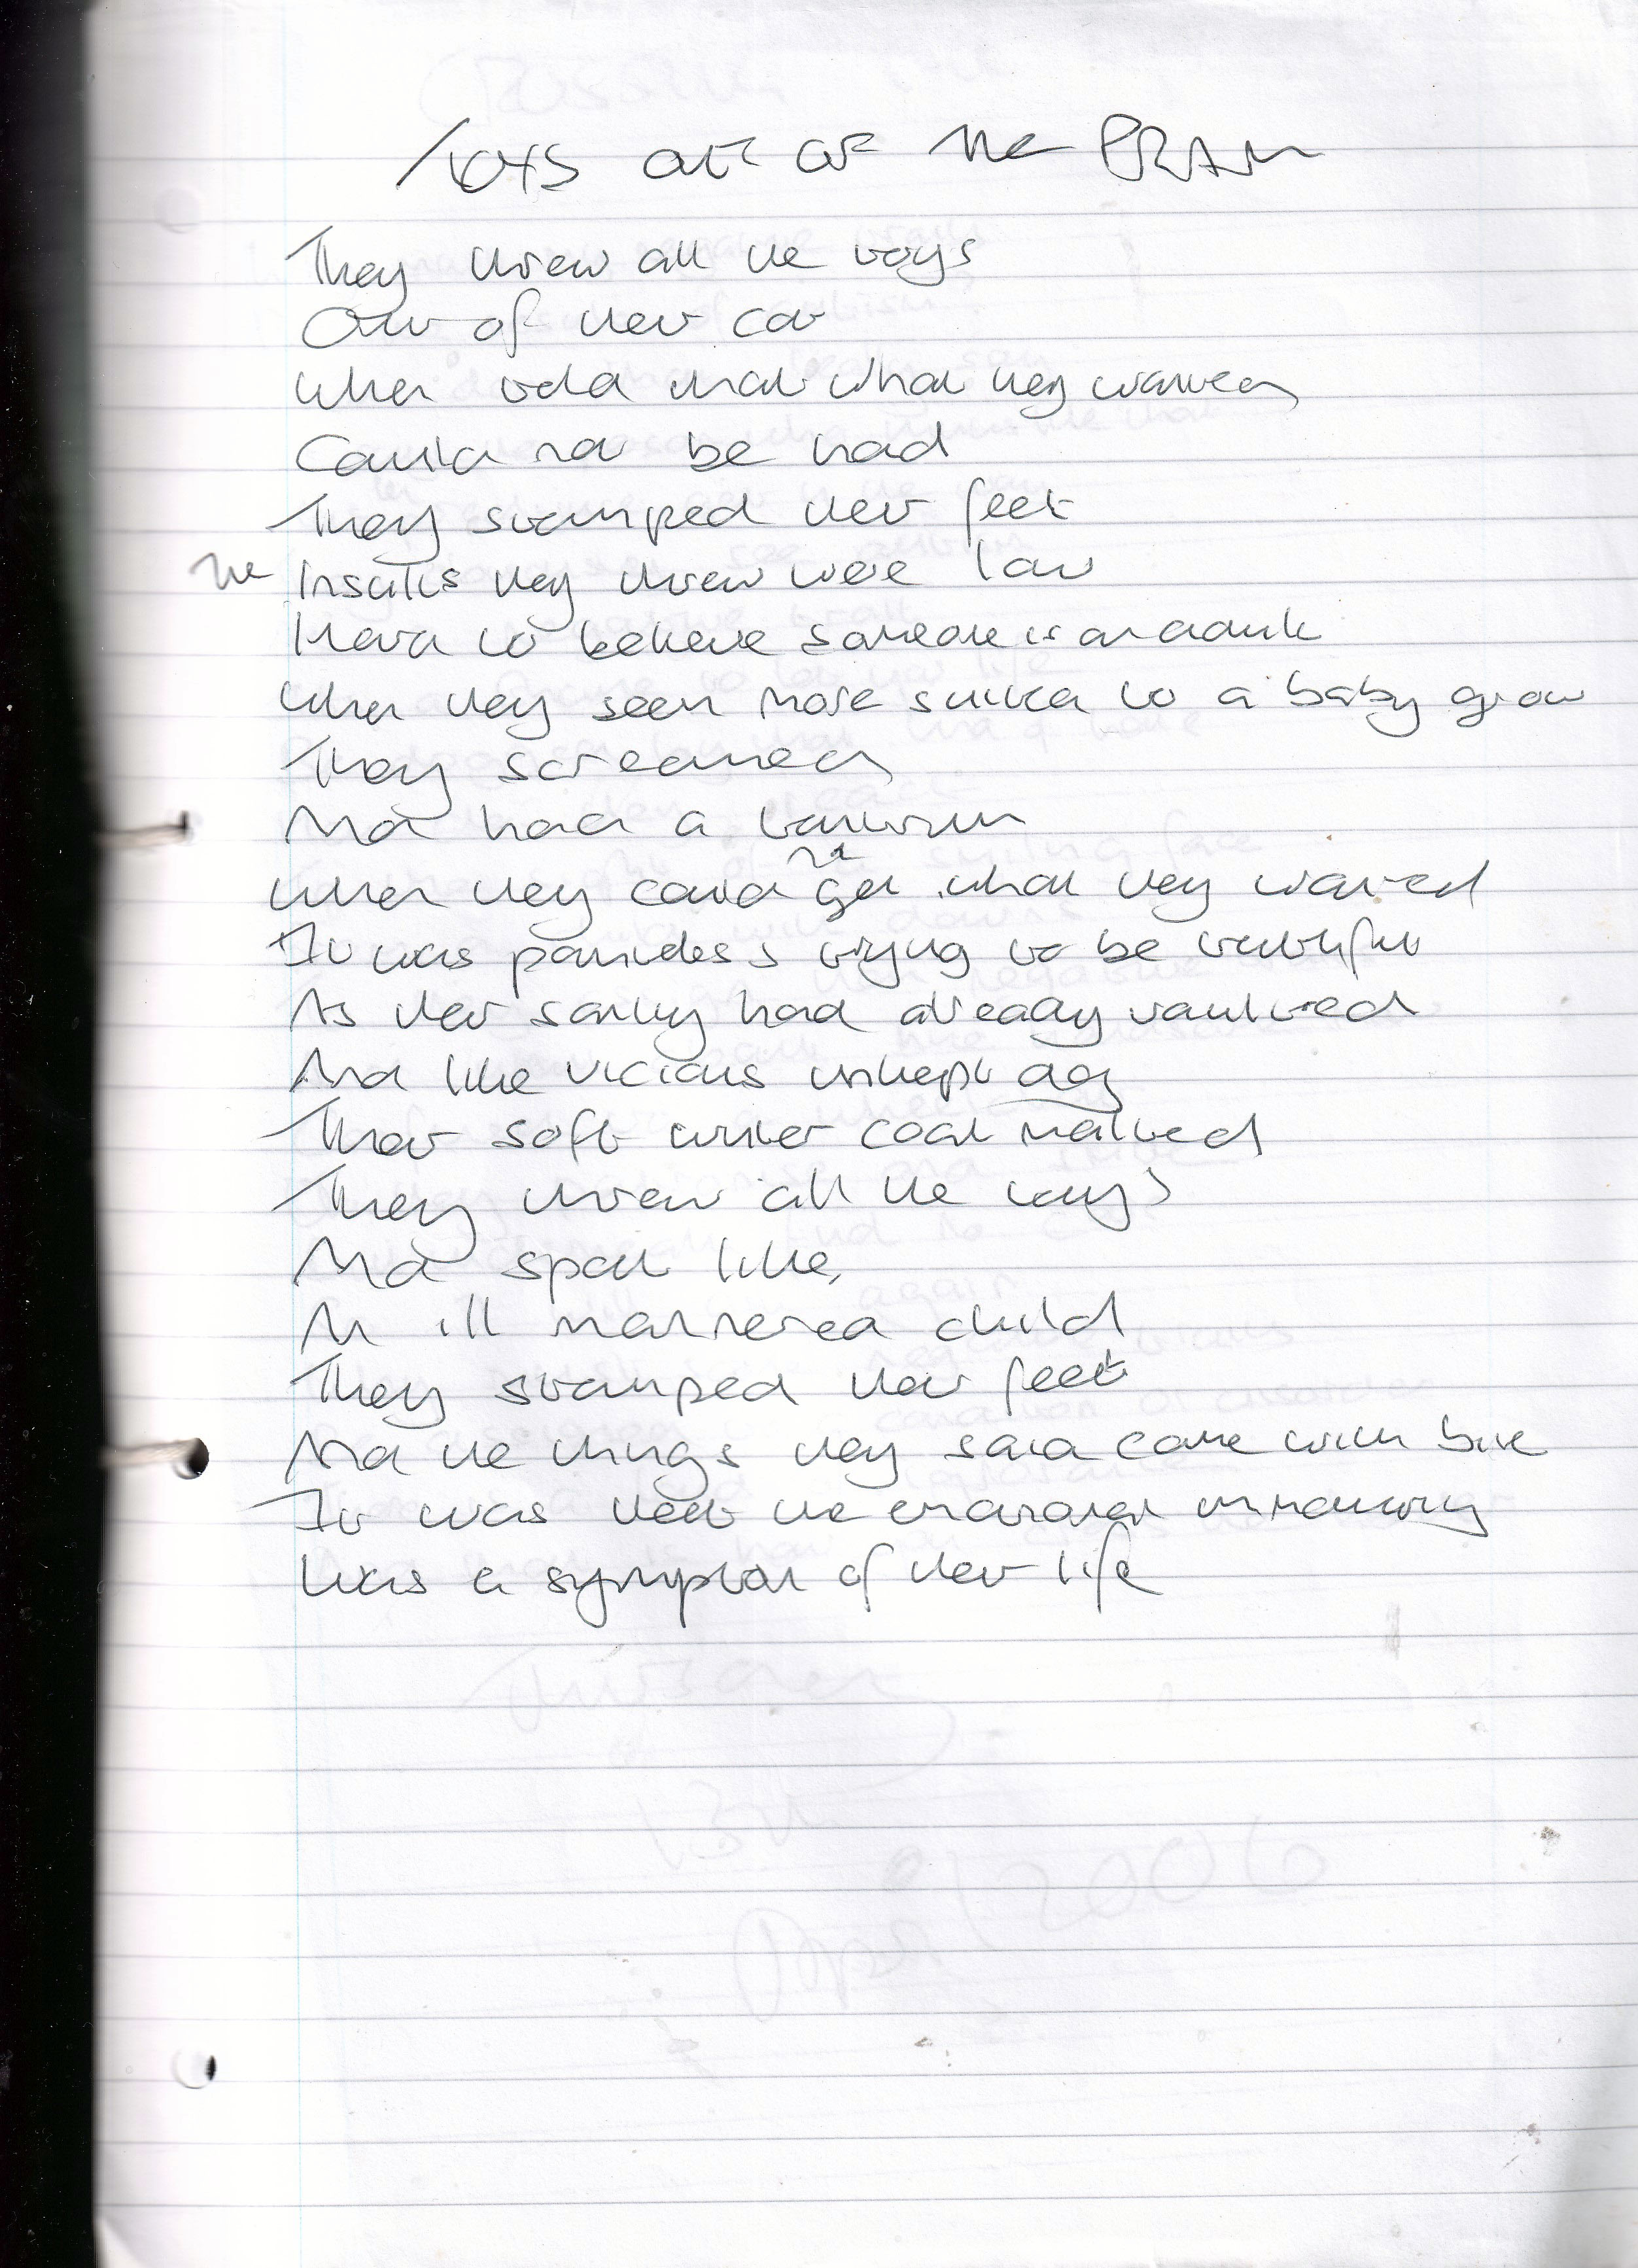 TOYS OUT OF THE PRAM
They threw all the toys
Out of their cot
When told that what they wanted
Could not be had
They stamped their feet
The insults they threw were low
Hard to believe someone is an adult
When they seem more suited to a baby grow
They screamed
And had a tantrum
When they could not get what they wanted
It was pointless trying to be truthful
As their sanity had already vaulted
And like vicious unkept dog
Their soft under coat matted
They threw all the toys
And spat like,
An ill mannered child
They stamped their feet
And the things they said came with bite
It was the
Was a symptom of their life